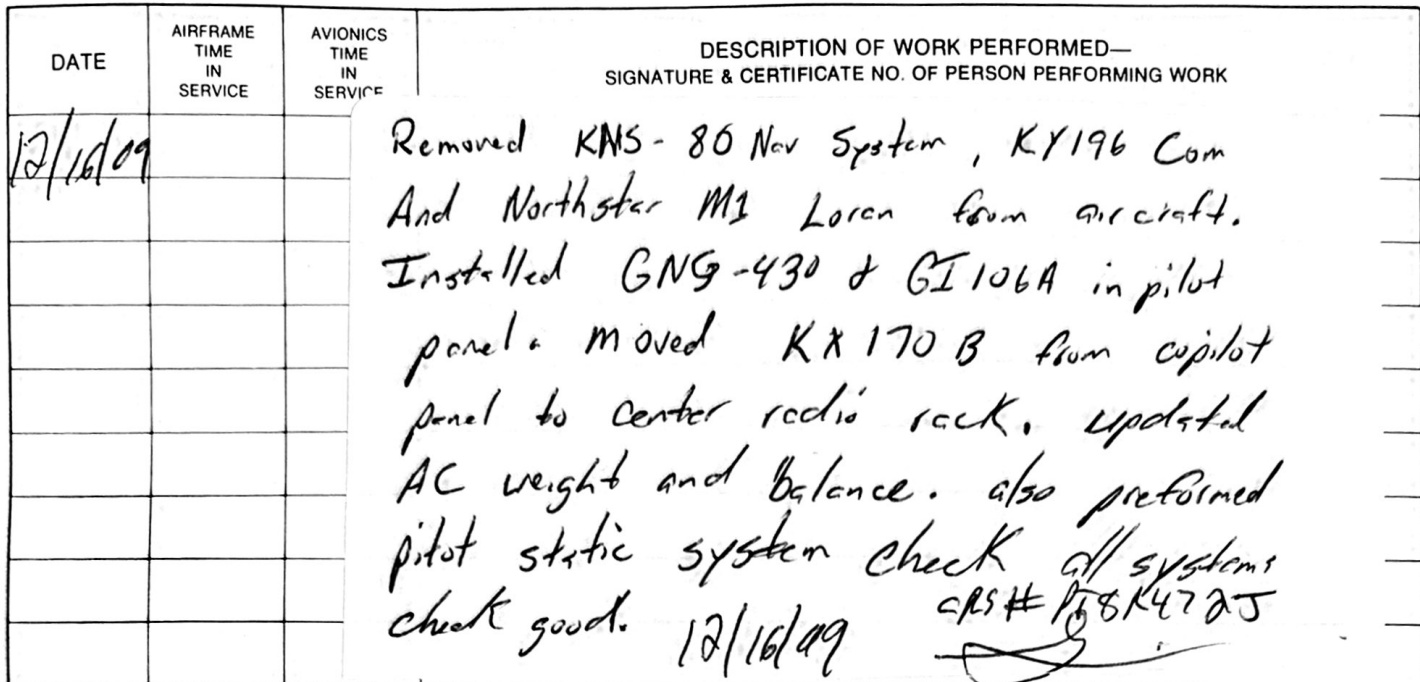 DATE
AIRFRAME
TIME
IN
SERVICE
AVIONICS
TIME
IN
SERVICE
DESCRIPTION OF WORK PERFORMED—
SIGNATURE & CERTIFICATE NO. OF PERSON PERFORMING WORK
12/16/09
Removed KNS-80 Nav System, KY196 Com
And Northstar M1 Loran from aircraft.
Installed GNS-430 & GI106A in pilot
panel. moved KX170B from copilot
panel to center radio rack. updated
AC weight and balance. also preformed
pitot static system check all systems
check good. 12/16/09 CRS#